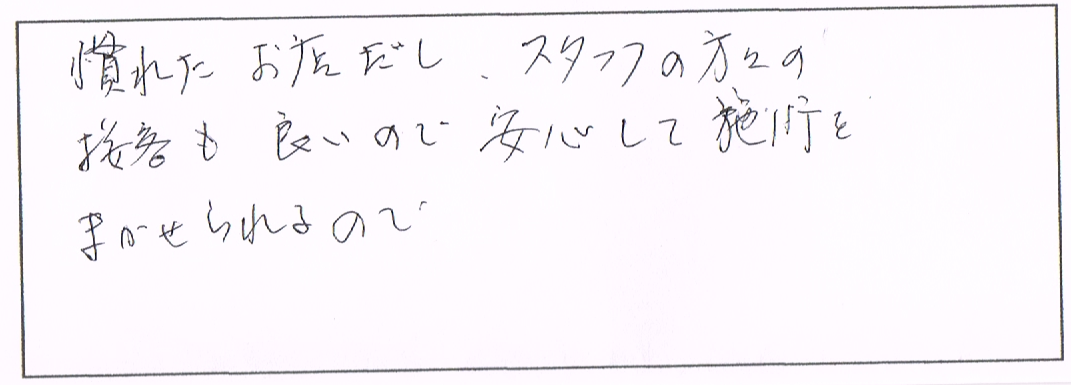 慣れたお店だし、スタッフの方々の
接客も良いので安心して施行を
まかせられるので